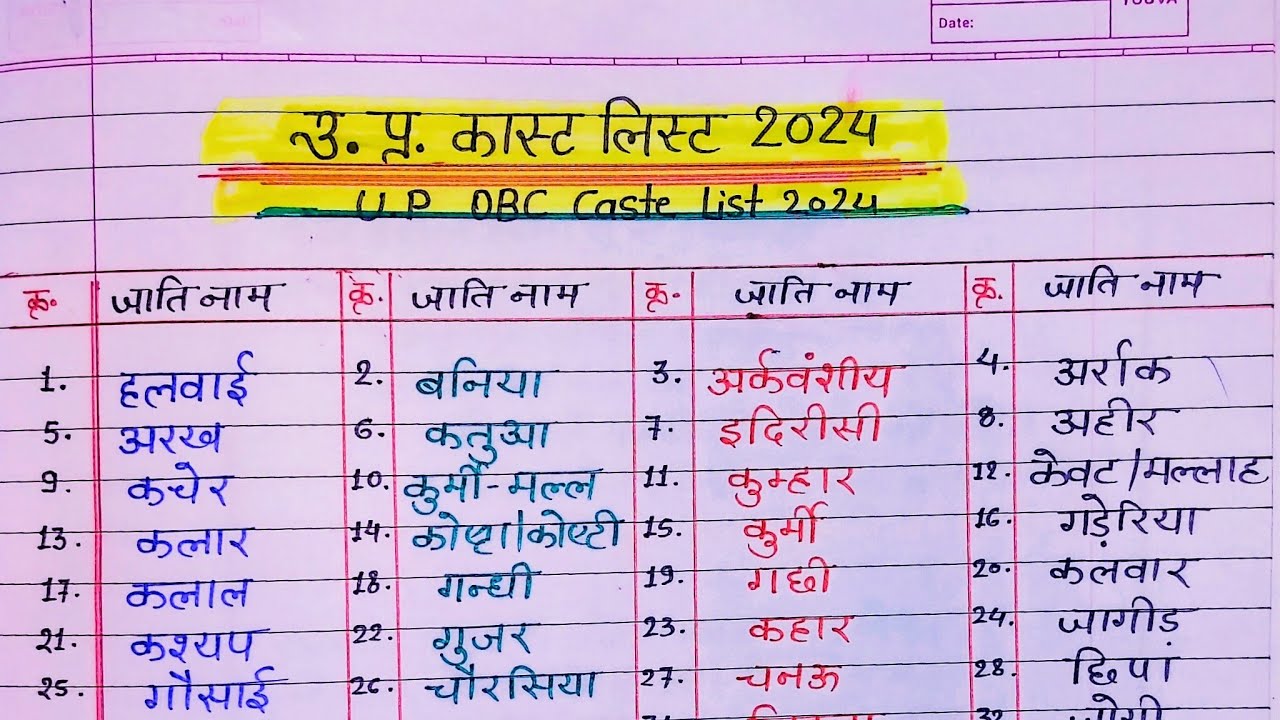 YOUVA
Date:
उ. प्र. कास्ट लिस्ट 2024
U.P OBC Caste List 2024
क्र. जाति नाम क्र. जाति नाम क्र. जाति नाम क्र. जाति नाम
1. हलवाई 2. बनिया 3. अर्कवंशीय 4. अर्राक
5. अरख 6. कतुआ 7. इदिरीसी 8. अहीर
9. कचेर 10. कुर्मी-मल्ल 11. कुम्हार 12. केवट/मल्लाह
13. कलार 14. कोष्टा/कोष्टी 15. कुर्मी 16. गड़ेरिया
17. कलाल 18. गन्धी 19. गद्दी 20. कलवार
21. कश्यप 22. गुजर 23. कहार 24. जागीड़
25. गौसाई 26. चौरसिया 27. चनऊ 28. छिपा
32. जोगी